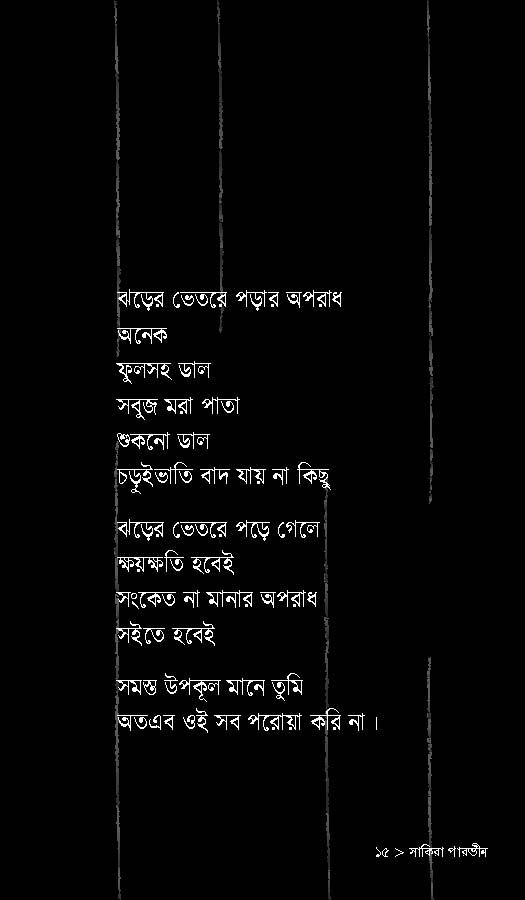 ঝড়ের ভেতরে পড়ার অপরাধ
অনেক
ফুলসহ ডাল
সবুজ মরা পাতা
শুকনো ডাল
চড়ুইভাতি বাদ যায় না কিছু
ঝড়ের ভেতরে পড়ে গেলে
ক্ষয়ক্ষতি হবেই
সংকেত না মানার অপরাধ
সইতে হবেই
সমস্ত উপকূল মানে তুমি
অতএব ওই সব পরোয়া করি না ।
১৫ > সাকিরা পারভীন